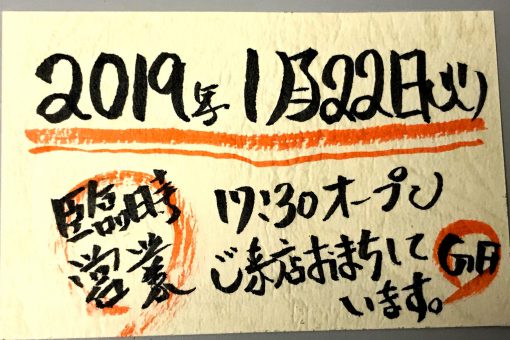 2019年1月22日(火)
臨時
営業
17:30オープン
ご来店おまちして
います。